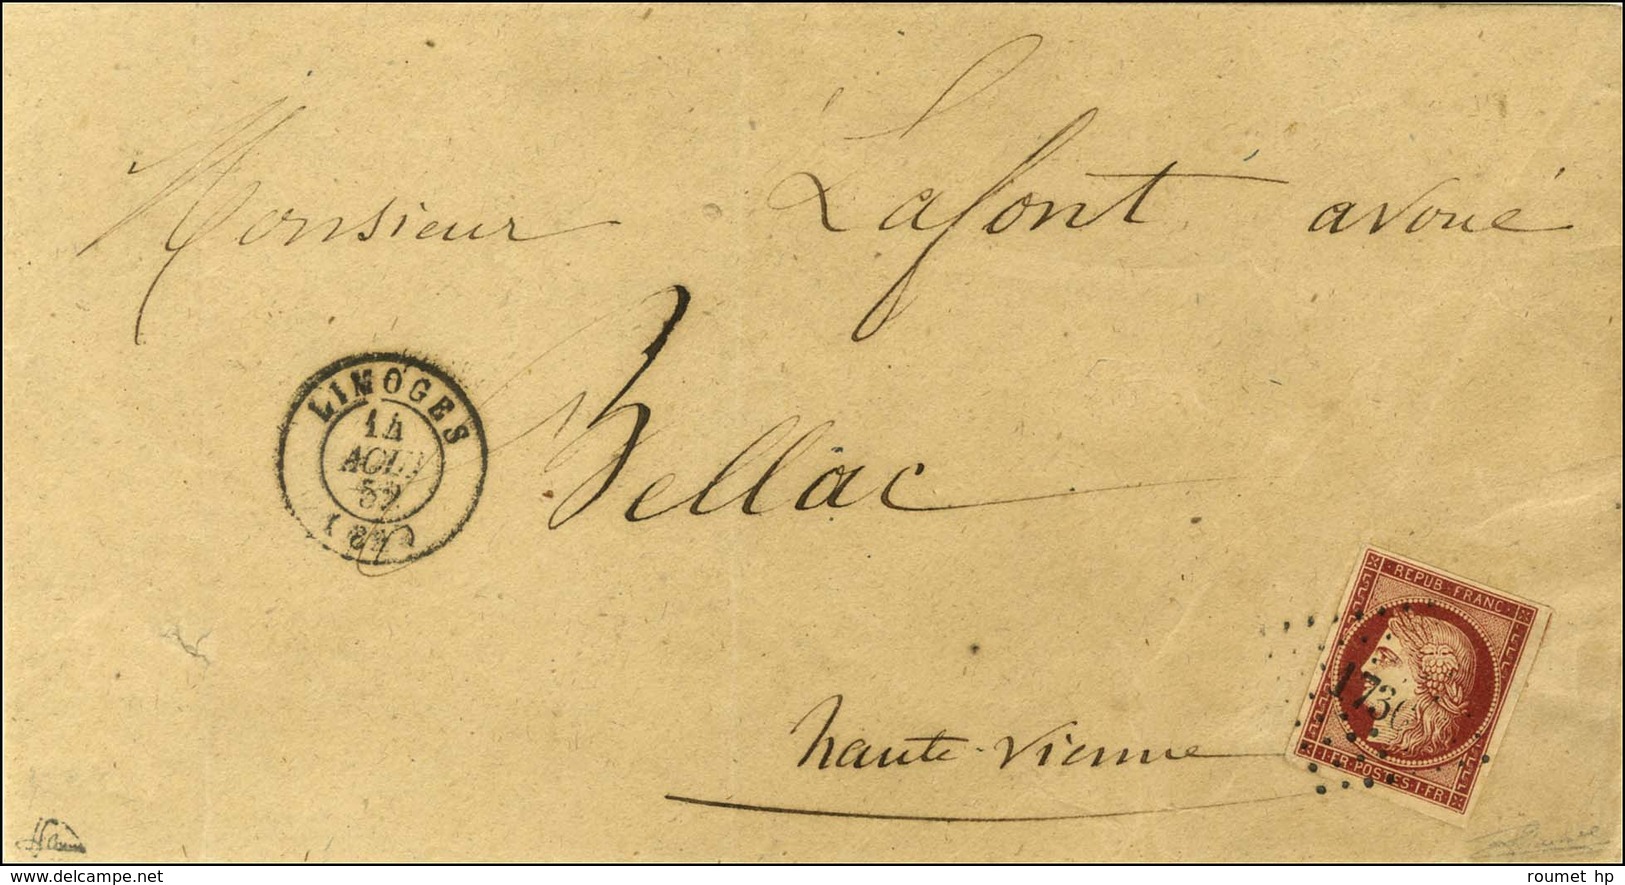 Monsieur Lafont avoué
LIMOGES
14
AOUT
52
Bellac
REPUB. FRANC.
1736
haute-vienne
1.FR-POSTES-1.FR
www.delcampe.net
roumet hp